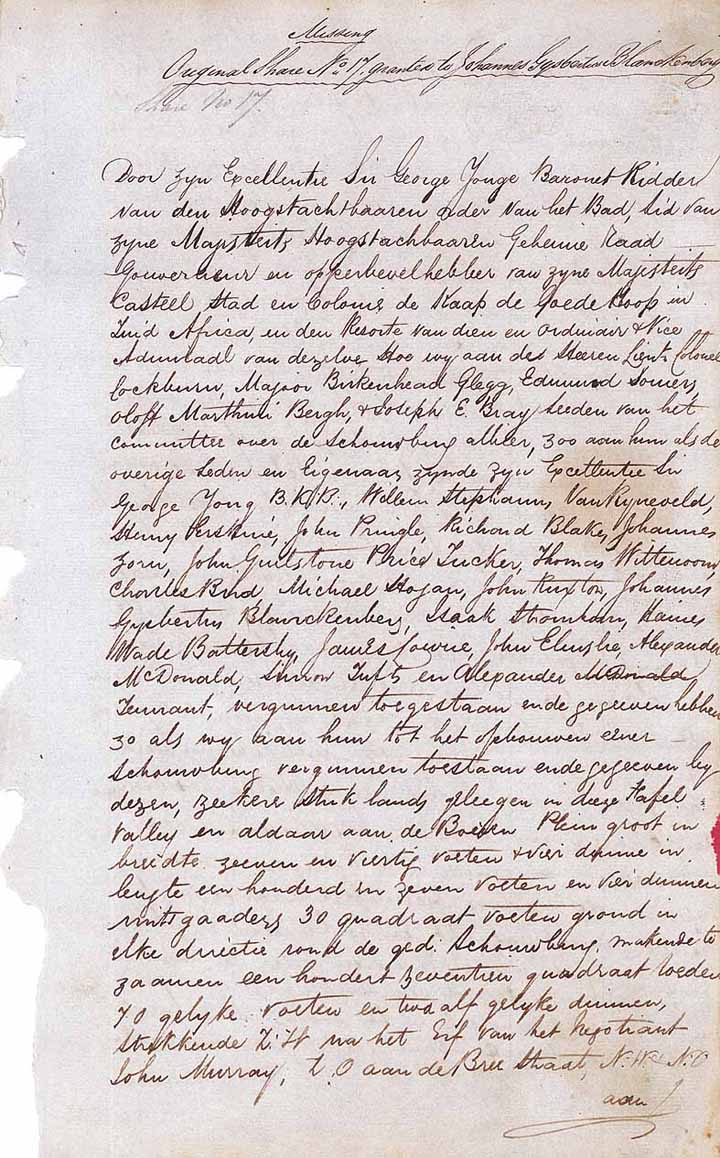 Missing
Original Share No 17. granted to Johannes Gysbertus Blanckenberg
Share No 17.
Door zyn Excellentie Sir George Yonge Baronet Ridder
van den Hoogstachtbaaren order van het Bad, Lid van
zyne Majesteits Hoogstachbaaren Geheime Raad
Gouverneur en opperbevelhebber van zyne Majesteits
Casteel Stad en Colonie de Kaap de Goede Hoop in
Zuid Africa, en den Resorte van dien en Ordinair & Vice
Admiraal van dezelve Hoe wy aan des Heeren Lieut Colonel
Cockburn, Majoor Birkenhead Glegg, Edmund Somers,
Oloff Marthini Bergh, & Joseph E. Bray Leeden van het
Committee over de Schouwburg alhier, zoo aan hun als de
overige Leden en Eigenaas zynde zyn Excellentie Sir
George Yong B.K.B., Willem Stephanus Van Ryneveld,
Henry Erskine, John Pringle, Richard Blake, Johannes
Zorn, John Guilstone Price Tucker, Thomas Wittenoom,
Charles Bird, Michael Hogan, John Ruxton, Johannes
Gysbertus Blanckenberg, Isaak Strombom, Haines
Wade Battersby, James Towne, John Elmslie, Alexander
McDonald, Simon Tufts en Alexander McDonald
Tennant, vergunnen toegestaan ende gegeeven hebben
zo als wy aan hun tot het opbouwen eener
Schouwburg vergunnen toestaan ende gegeeven by
dezen, zeekere stuk lands geleegen in deeze Tafel
Valley en aldaar aan de Boeren Plein groot in
breedte zeeven en viertig voeten & vier duime in
lengte een honderd en zeven voeten en vier duimen
mitsgaaders 30 quadraat voeten grond in
elke directie rond de ged: Schouwburg, makende te
zaamen een hondert zeventien quadraat roeden
70 gelyke voeten en twaalf gelyke duimen,
Strekkende Z:W na het Erf van het Negotiant
John Murray, Z.O aan de Bree Straat, N.W. & N.O
aan